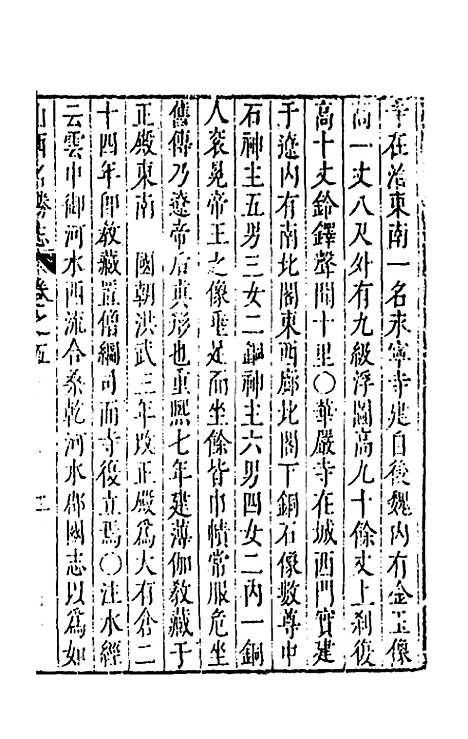 寺在治東南一名永寧寺建自後魏內有金玉像
高一丈八尺外有九級浮圖高九十餘丈上刹復
高十丈鈴鐸聲聞十里〇華嚴寺在城西門實建
于遼內有南北閣東西廊北閣下銅石像數尊中
石神主五男三女二銅神主六男四女二內一銅
人袞冕帝王之像垂足而坐餘皆巾幘常服危坐
舊傳乃遼帝后真形也重熙七年建薄伽教藏于
正殿東南 國朝洪武三年攺正殿爲大有倉二
十四年卽教藏置僧綱司而寺復立焉〇注水經
云雲中御河水西流合桑乾河水郡國志以爲如
山西名勝志 卷之五